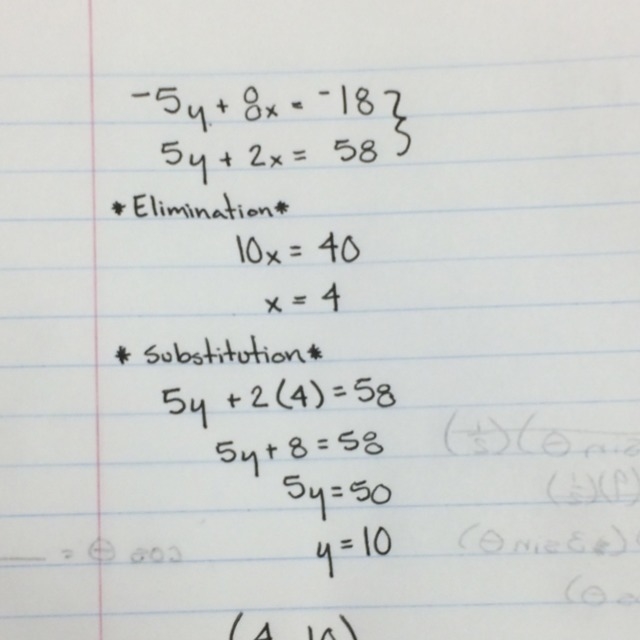 -5y + 8x = -18 }
5y + 2x = 58
*Elimination*
10x = 40
x = 4
*Substitution*
5y + 2(4) = 58
5y + 8 = 58
5y = 50
y = 10
(4, 10)